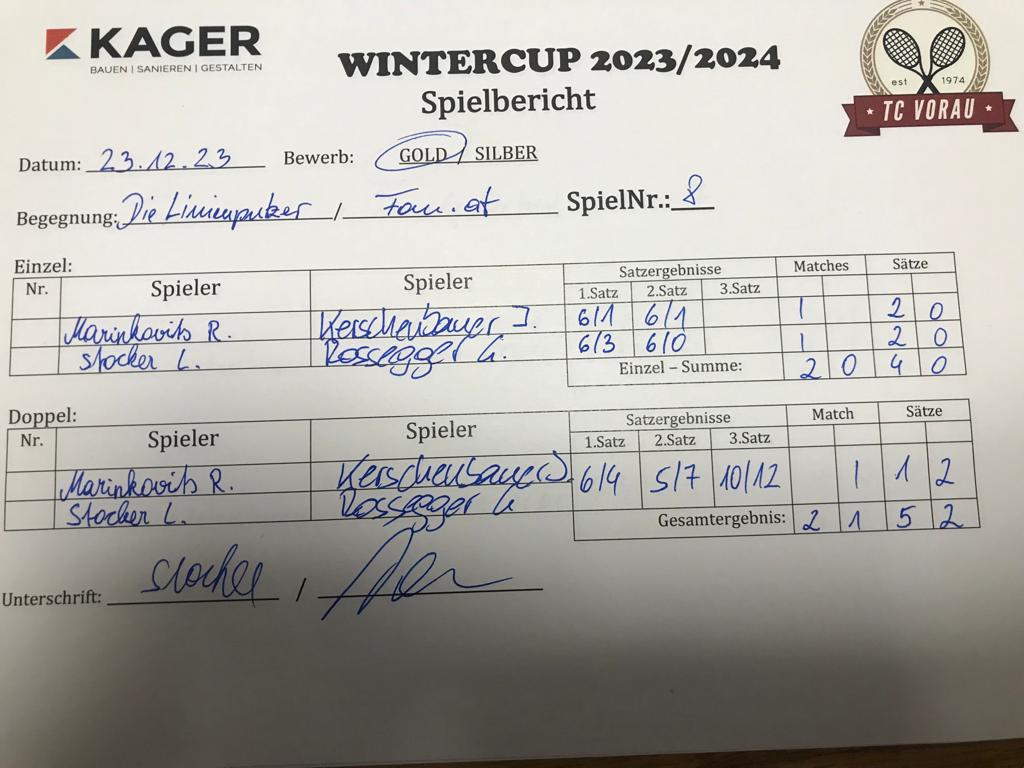 KAGER
BAUEN | SANIEREN | GESTALTEN
WINTERCUP 2023/2024
Spielbericht
est 1974
TC VORAU
Datum: 23.12.23 Bewerb: GOLD / SILBER
Begegnung: Die Linienputzer / Fam.at SpielNr.: 8
Einzel:
Nr. Spieler Spieler Satzergebnisse Matches Sätze
1.Satz 2.Satz 3.Satz
Marinkovits R. Kerschenbauer J. 6/1 6/1 1 2 0
Stocker L. Rossegger G. 6/3 6/0 1 2 0
Einzel – Summe: 2 0 4 0
Doppel:
Nr. Spieler Spieler Satzergebnisse Match Sätze
1.Satz 2.Satz 3.Satz
Marinkovits R. Kerschenbauer J 6/4 5/7 10/12 1 1 2
Stocker L. Rossegger G
Gesamtergebnis: 2 1 5 2
Unterschrift: Stocker /